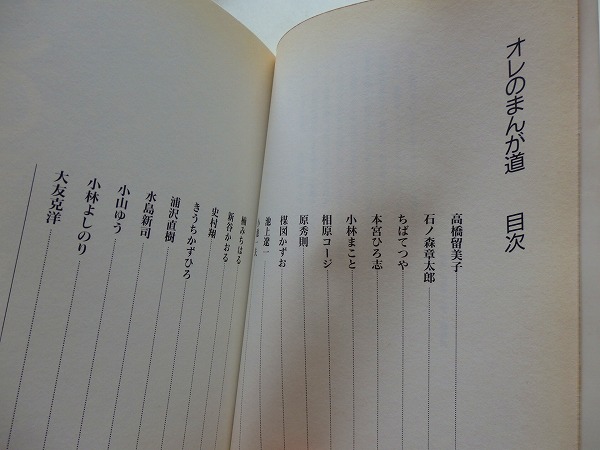 オレのまんが道 目次
高橋留美子
石ノ森章太郎
ちばてつや
本宮ひろ志
小林まこと
相原コージ
原秀則
楳図かずお
池上遼一
楠みちはる
新谷かおる
史村翔
きうちかずひろ
浦沢直樹
水島新司
小山ゆう
小林よしのり
大友克洋